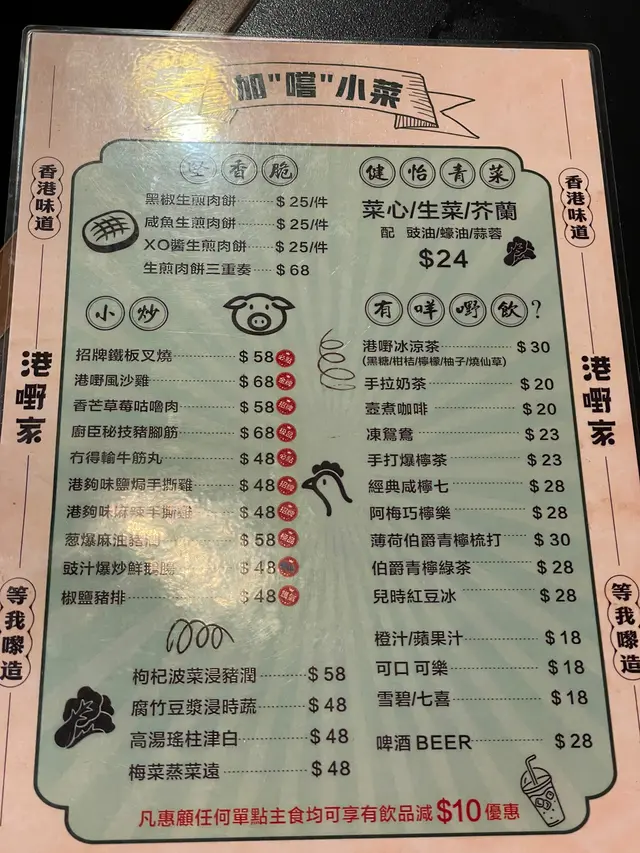 加"嚐"小菜
堅香脆
黑椒生煎肉餅 $25/件
咸魚生煎肉餅 $25/件
XO醬生煎肉餅 $25/件
生煎肉餅三重奏 $68
健怡青菜
菜心/生菜/芥蘭
配 豉油/蠔油/蒜蓉
$24
小炒
招牌鐵板叉燒 $58 必點
港嘢風沙雞 $68
香芒草莓咕嚕肉 $58 招牌
廚臣秘技豬腳筋 $68
冇得輸牛筋丸 $48 必點
港夠味鹽焗手撕雞 $48 招牌
港夠味麻辣手撕雞 $48
葱爆麻油豬 $58
豉汁爆炒鮮鵝腸 $48
椒鹽豬排 $48
枸杞波菜浸豬潤 $58
腐竹豆漿浸時蔬 $48
高湯瑤柱津白 $48
梅菜蒸菜遠 $48
有咩嘢飲?
港嘢冰涼茶 $30
(黑糖/柑桔/檸檬/柚子/燒仙草)
手拉奶茶 $20
壺煮咖啡 $20
凍鴛鴦 $23
手打爆檸茶 $23
經典咸檸七 $28
阿梅巧檸樂 $28
薄荷伯爵青檸梳打 $30
伯爵青檸綠茶 $28
兒時紅豆冰 $28
橙汁/蘋果汁 $18
可口可樂 $18
雪碧/七喜 $18
啤酒 BEER $28
凡惠顧任何單點主食均可享有飲品減 $10 優惠
香港味道
港嘢家
等我嚟造
香港味道
港嘢家
等我嚟造